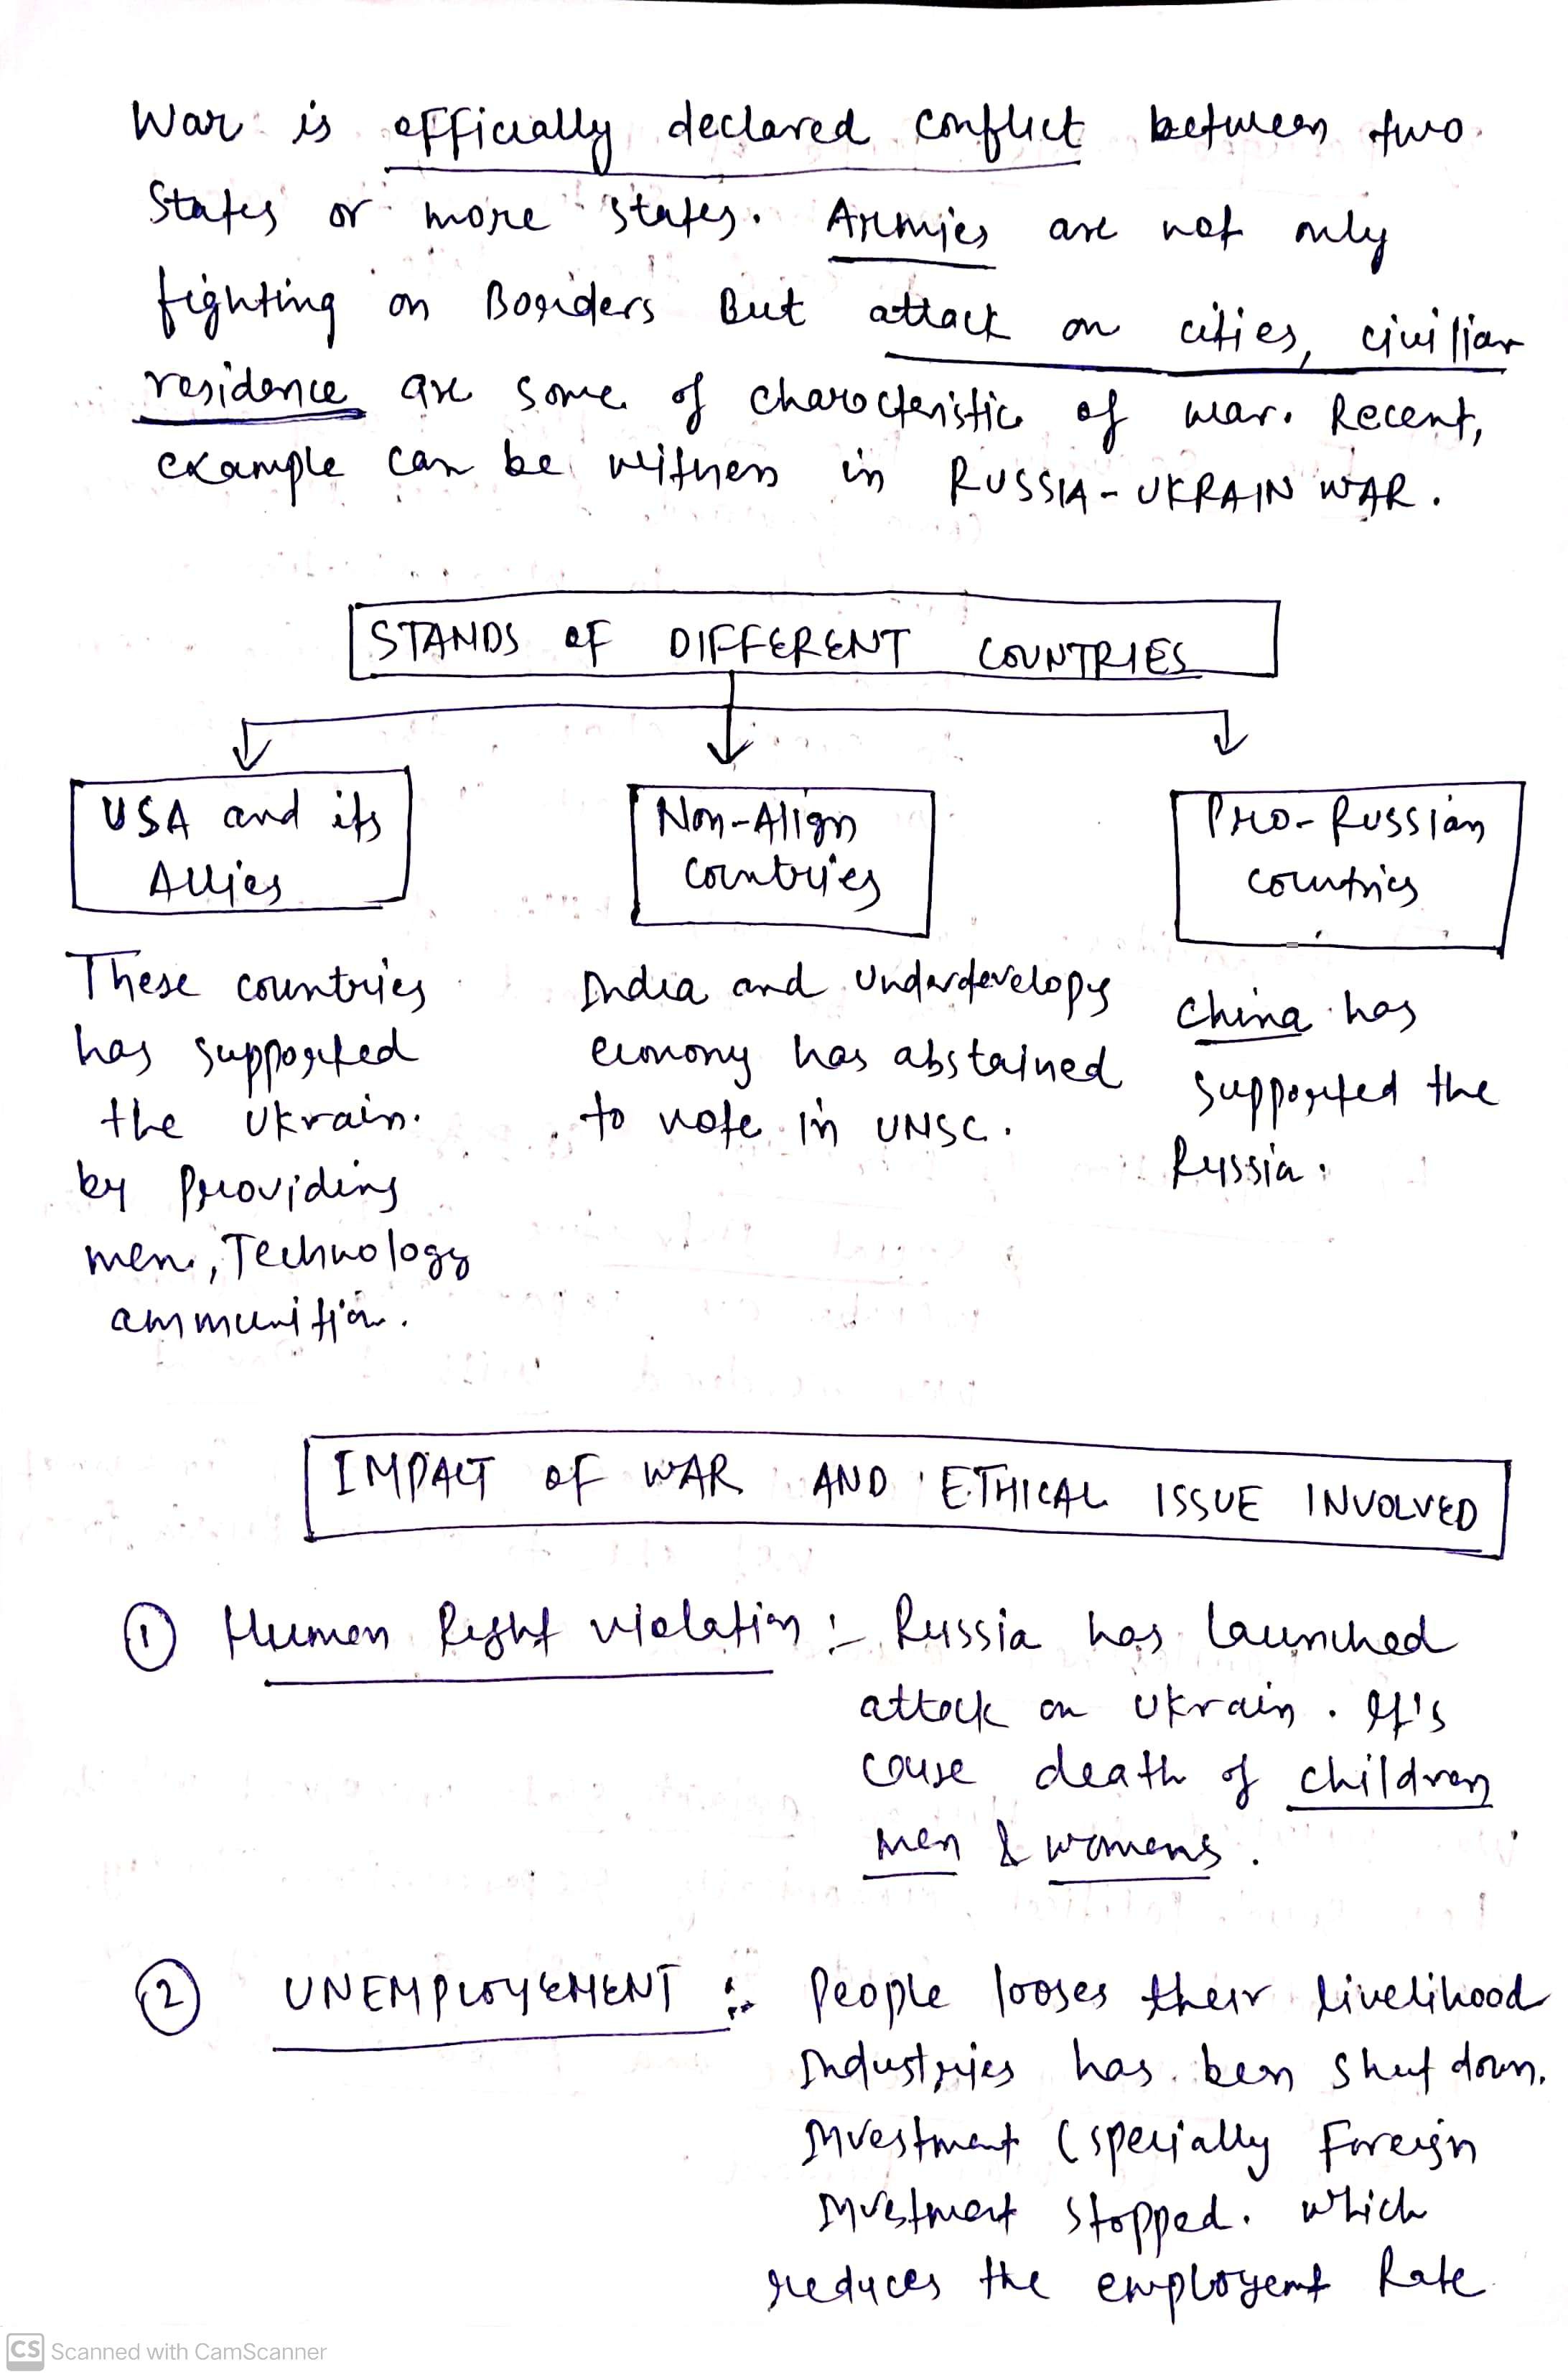 War is officially declared conflict between two
States or more states. Armies are not only
fighting on Borders But attack on cities, civilian
residence are some of charocteristic of war. Recent,
example can be witness in RUSSIA-UKRAIN WAR.
STANDS OF DIFFERENT COUNTRIES
USA and its
Allies
These countries
has supported
the Ukrain.
by providing
men, Technology
ammunition.
Non-Align
Countries
India and Underdevelopy
economy has abstained
to vote in UNSC.
Pro-Russian
countries
China has
supported the
Russia.
IMPACT OF WAR AND ETHICAL ISSUE INVOLVED
① Human Right violation :- Russia has launched
attack on Ukrain. It's
cause death of children
men & womens.
② UNEMPLOYEMENT :- People looses their livelihood
Industries has been shut down.
Investment (specially Foreign
Investment stopped. which
reduces the employemt Rate
CS Scanned with CamScanner